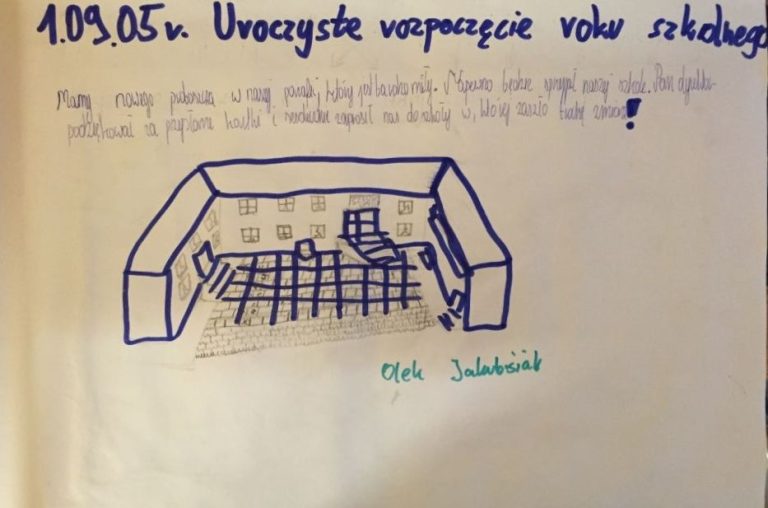 1.09.05 r. Uroczyste rozpoczęcie roku szkolnego
Mamy nowego proboszcza w naszej parafii, który jest bardzo miły. Na pewno będzie sprzyjał naszej szkole. Pan dyrektor
podziękował za przysłane kartki i serdecznie zaprosił nas do szkoły w, której zaszło trochę zmian!
Olek Jakubisiak